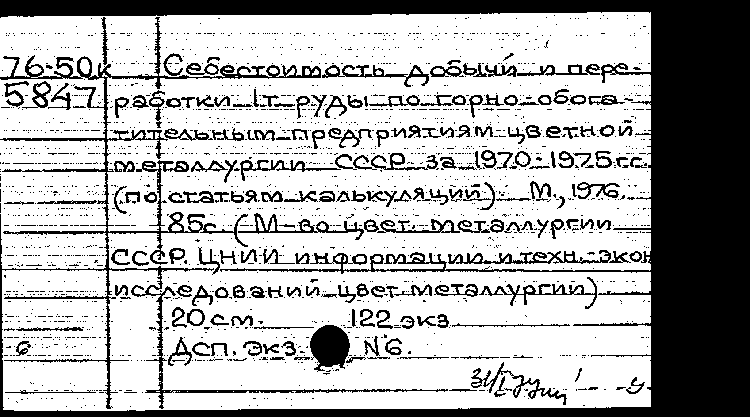 76-50к Себестоимость добычи и пере-
5847 работки 1т руды по горно-обога-
тительным предприятиям цветной
металлургии СССР за 1970-1975 гг.
(по статьям калькуляций). М., 1976.
85с. (М-во цвет. металлургии
СССР. ЦНИИ информации и техн.-экон
исследований цвет. металлургии)
20 см. 122 экз
6 ДСП. Экз. N6.